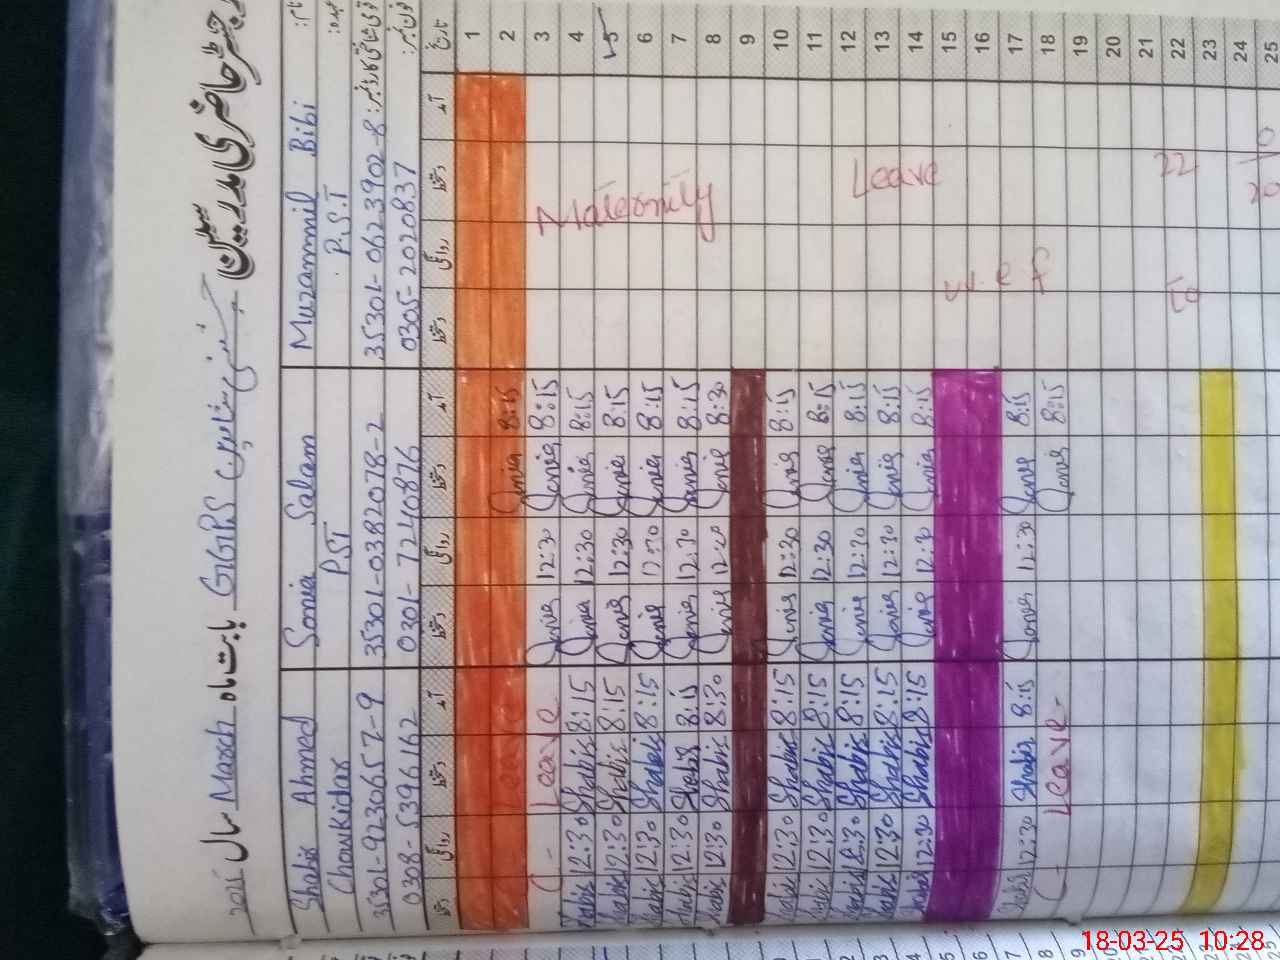 رجسٹر حاضری مدرسین
GGPS
بابت ماہ March سال 2025
نام:
Muzammil Bibi
Sonia Salam
Shabir Ahmed
عہدہ:
P.S.T
PST
Chowkidar
قومی شناختی کارڈ نمبر:
35301-0623902-8
35301-0382078-2
35301-9230657-9
فون نمبر:
0305-2020837
0301-7240876
0308-5396162
تاریخ آمد دستخط روانگی دستخط آمد دستخط روانگی دستخط آمد دستخط روانگی دستخط
1
2 8:15 Sonia Leave
3 8:15 Sonia 12:30 Sonia Leave
4 8:15 Sonia 12:30 Sonia 8:15 Shabir 12:30 Shabir
5 8:15 Sonia 12:30 Sonia 8:15 Shabir 12:30 Shabir
6 8:15 Sonia 12:30 Sonia 8:15 Shabir 12:30 Shabir
7 8:15 Sonia 12:30 Sonia 8:15 Shabir 12:30 Shabir
8 8:30 Sonia 12:20 Sonia 8:30 Shabir 12:30 Shabir
9
10 8:15 Sonia 12:30 Sonia 8:15 Shabir 12:30 Shabir
11 8:15 Sonia 12:30 Sonia 8:15 Shabir 12:30 Shabir
12 8:15 Sonia 12:30 Sonia 8:15 Shabir 12:30 Shabir
13 8:15 Sonia 12:30 Sonia 8:15 Shabir 12:30 Shabir
14 8:15 Sonia 12:30 Sonia 8:15 Shabir 12:30 Shabir
15
16
17 8:15 Sonia 12:30 Sonia 8:15 Shabir 12:30 Shabir
18 8:15 Sonia Leave
19
20
21
22
23
24
25
Maternity
Leave
w.e.f
22
to
20
18-03-25 10:28